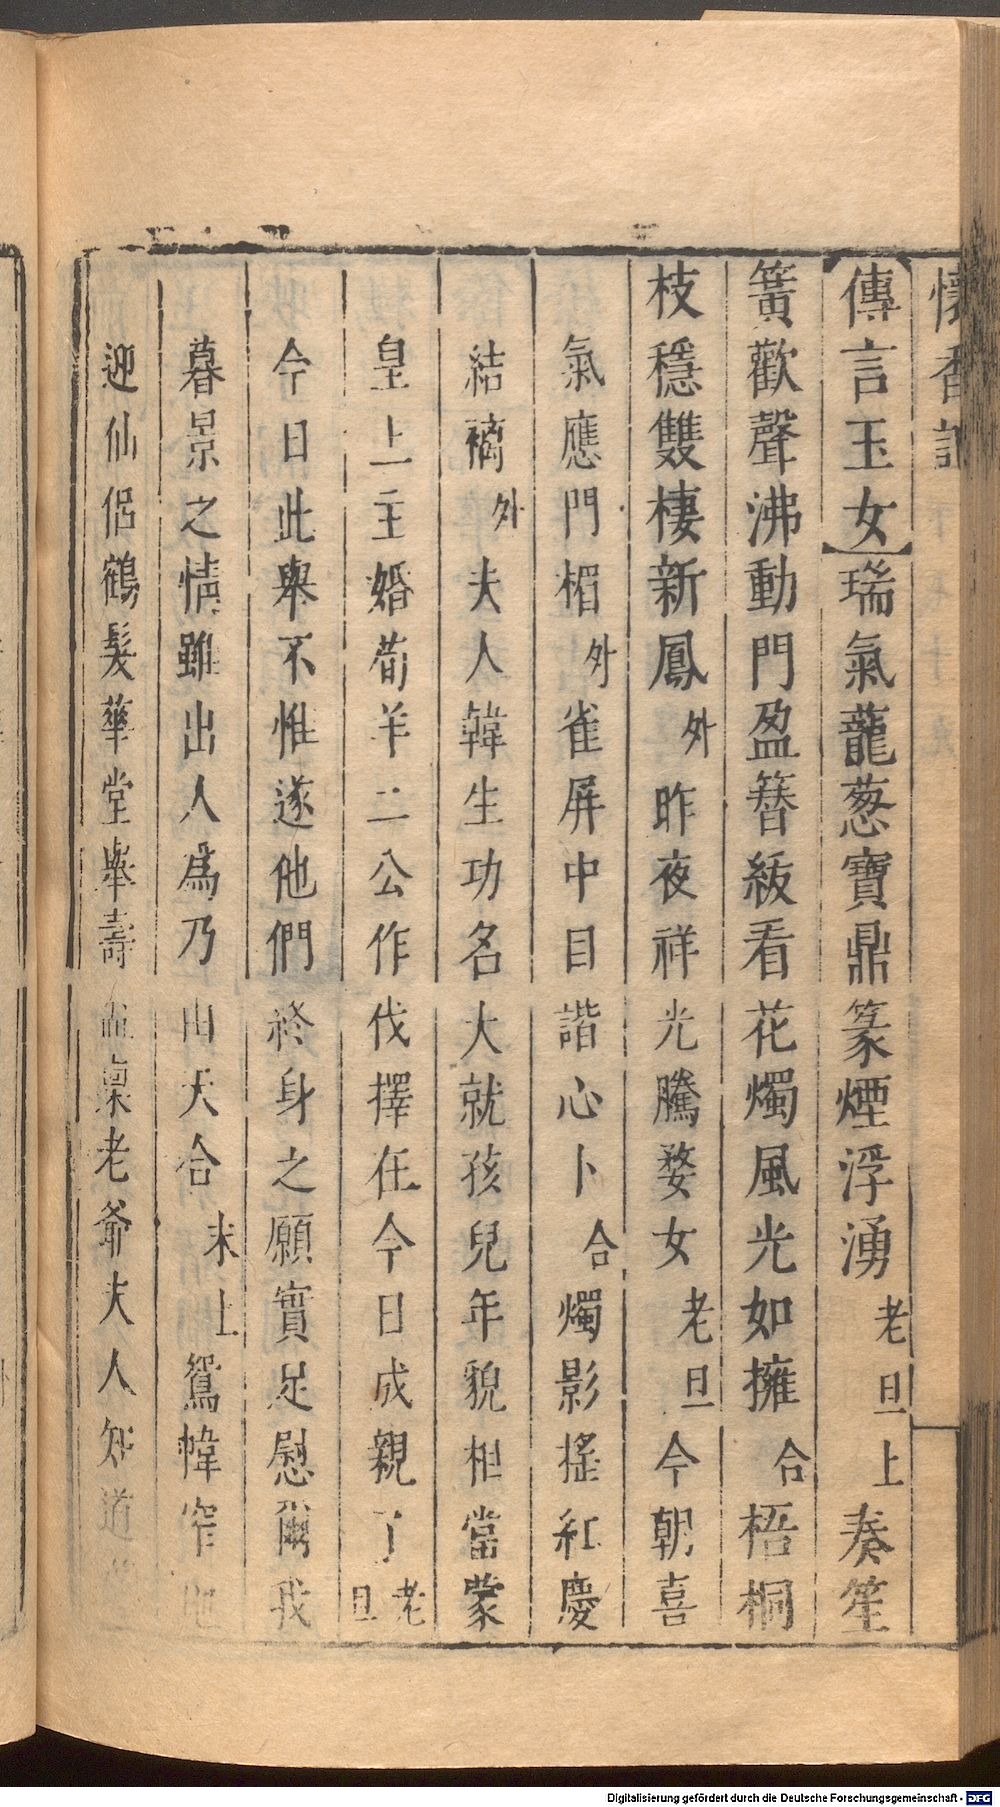 懷香記
傳言玉女瑞氣蘢葱寶鼎篆煙浮湧老旦上奏笙
簧歡聲沸動門盈簪紱看花燭風光如擁合梧桐
枝穩雙棲新鳳外昨夜祥光騰婺女老旦今朝喜
氣應門楣外雀屏中目諧心卜合燭影搖紅慶
結褵外夫人韓生功名大就孩兒年貌相當蒙
皇上主婚荀羊二公作伐擇在今日成親了老旦
今日此舉不惟遂他們終身之願實足慰爾我
暮景之情雖出人爲乃由天合末上鴛幃窄
迎仙侶鶴髮華堂舉壽 稟老爺夫人知道
Digitalisierung gefördert durch die Deutsche Forschungsgemeinschaft - DFG